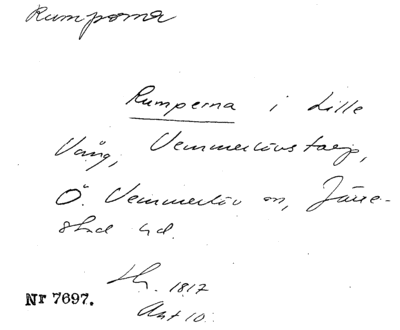 Rumporna
Rumperna i Lille
Vång, Vemmerlövstorp,
Ö. Vemmerlöv sn, Järre-
stad hd.
Lh. 1817
Akt 10.
Nr 7697.